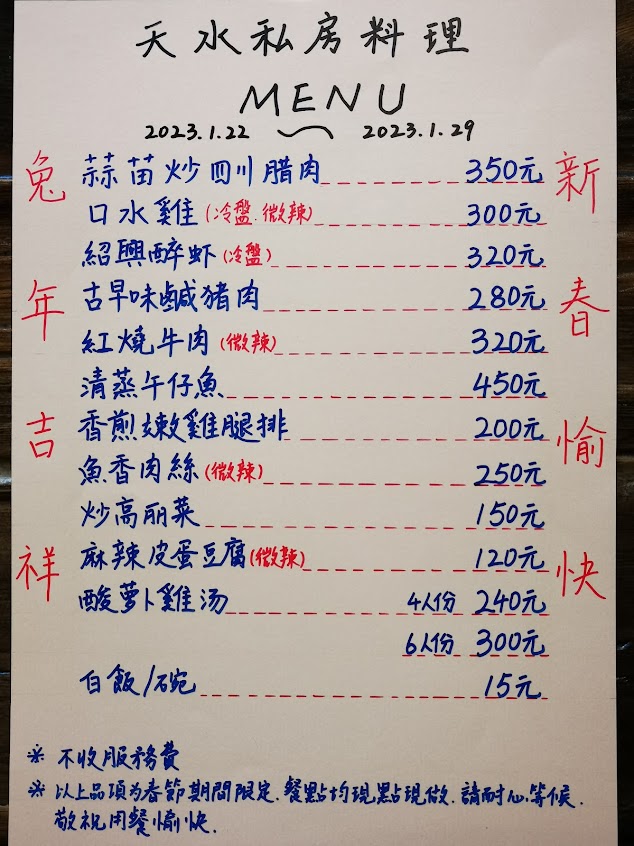 天水私房料理
MENU
2023.1.22 ~ 2023.1.29
兔年吉祥
新春愉快
蒜苗炒四川腊肉 350元
口水雞(冷盤.微辣) 300元
紹興醉虾(冷盤) 320元
古早味鹹猪肉 280元
紅燒牛肉(微辣) 320元
清蒸午仔魚 450元
香煎嫩雞腿排 200元
魚香肉絲(微辣) 250元
炒高丽菜 150元
麻辣皮蛋豆腐(微辣) 120元
酸萝卜雞汤 4人份 240元
6人份 300元
白飯/碗 15元
※ 不收服務費
※ 以上品項为春節期間限定.餐點均現點現做.請耐心等候.
敬祝用餐愉快.